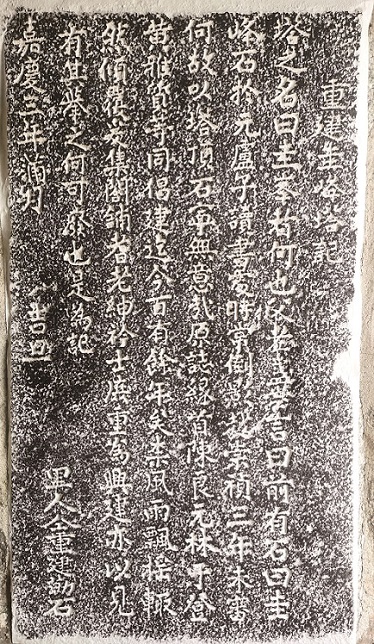 重建圭峰塔記
塔之名曰圭峯者何也父老言曰前有石曰圭
峰石於元盧子讀書處時常倒影越崇禎二年未審
何故以塔頂石爭無意哉原誌緣首陳良元林于登
黃雅資等同倡建迄今百有餘年矣柰風雨飄搖輒
然傾覆爰集閤鋪耆老紳衿士庶重為興建亦以見
有其舉之何可廢也是為記
嘉慶三年浦月 吉旦 里人仝重建勒石